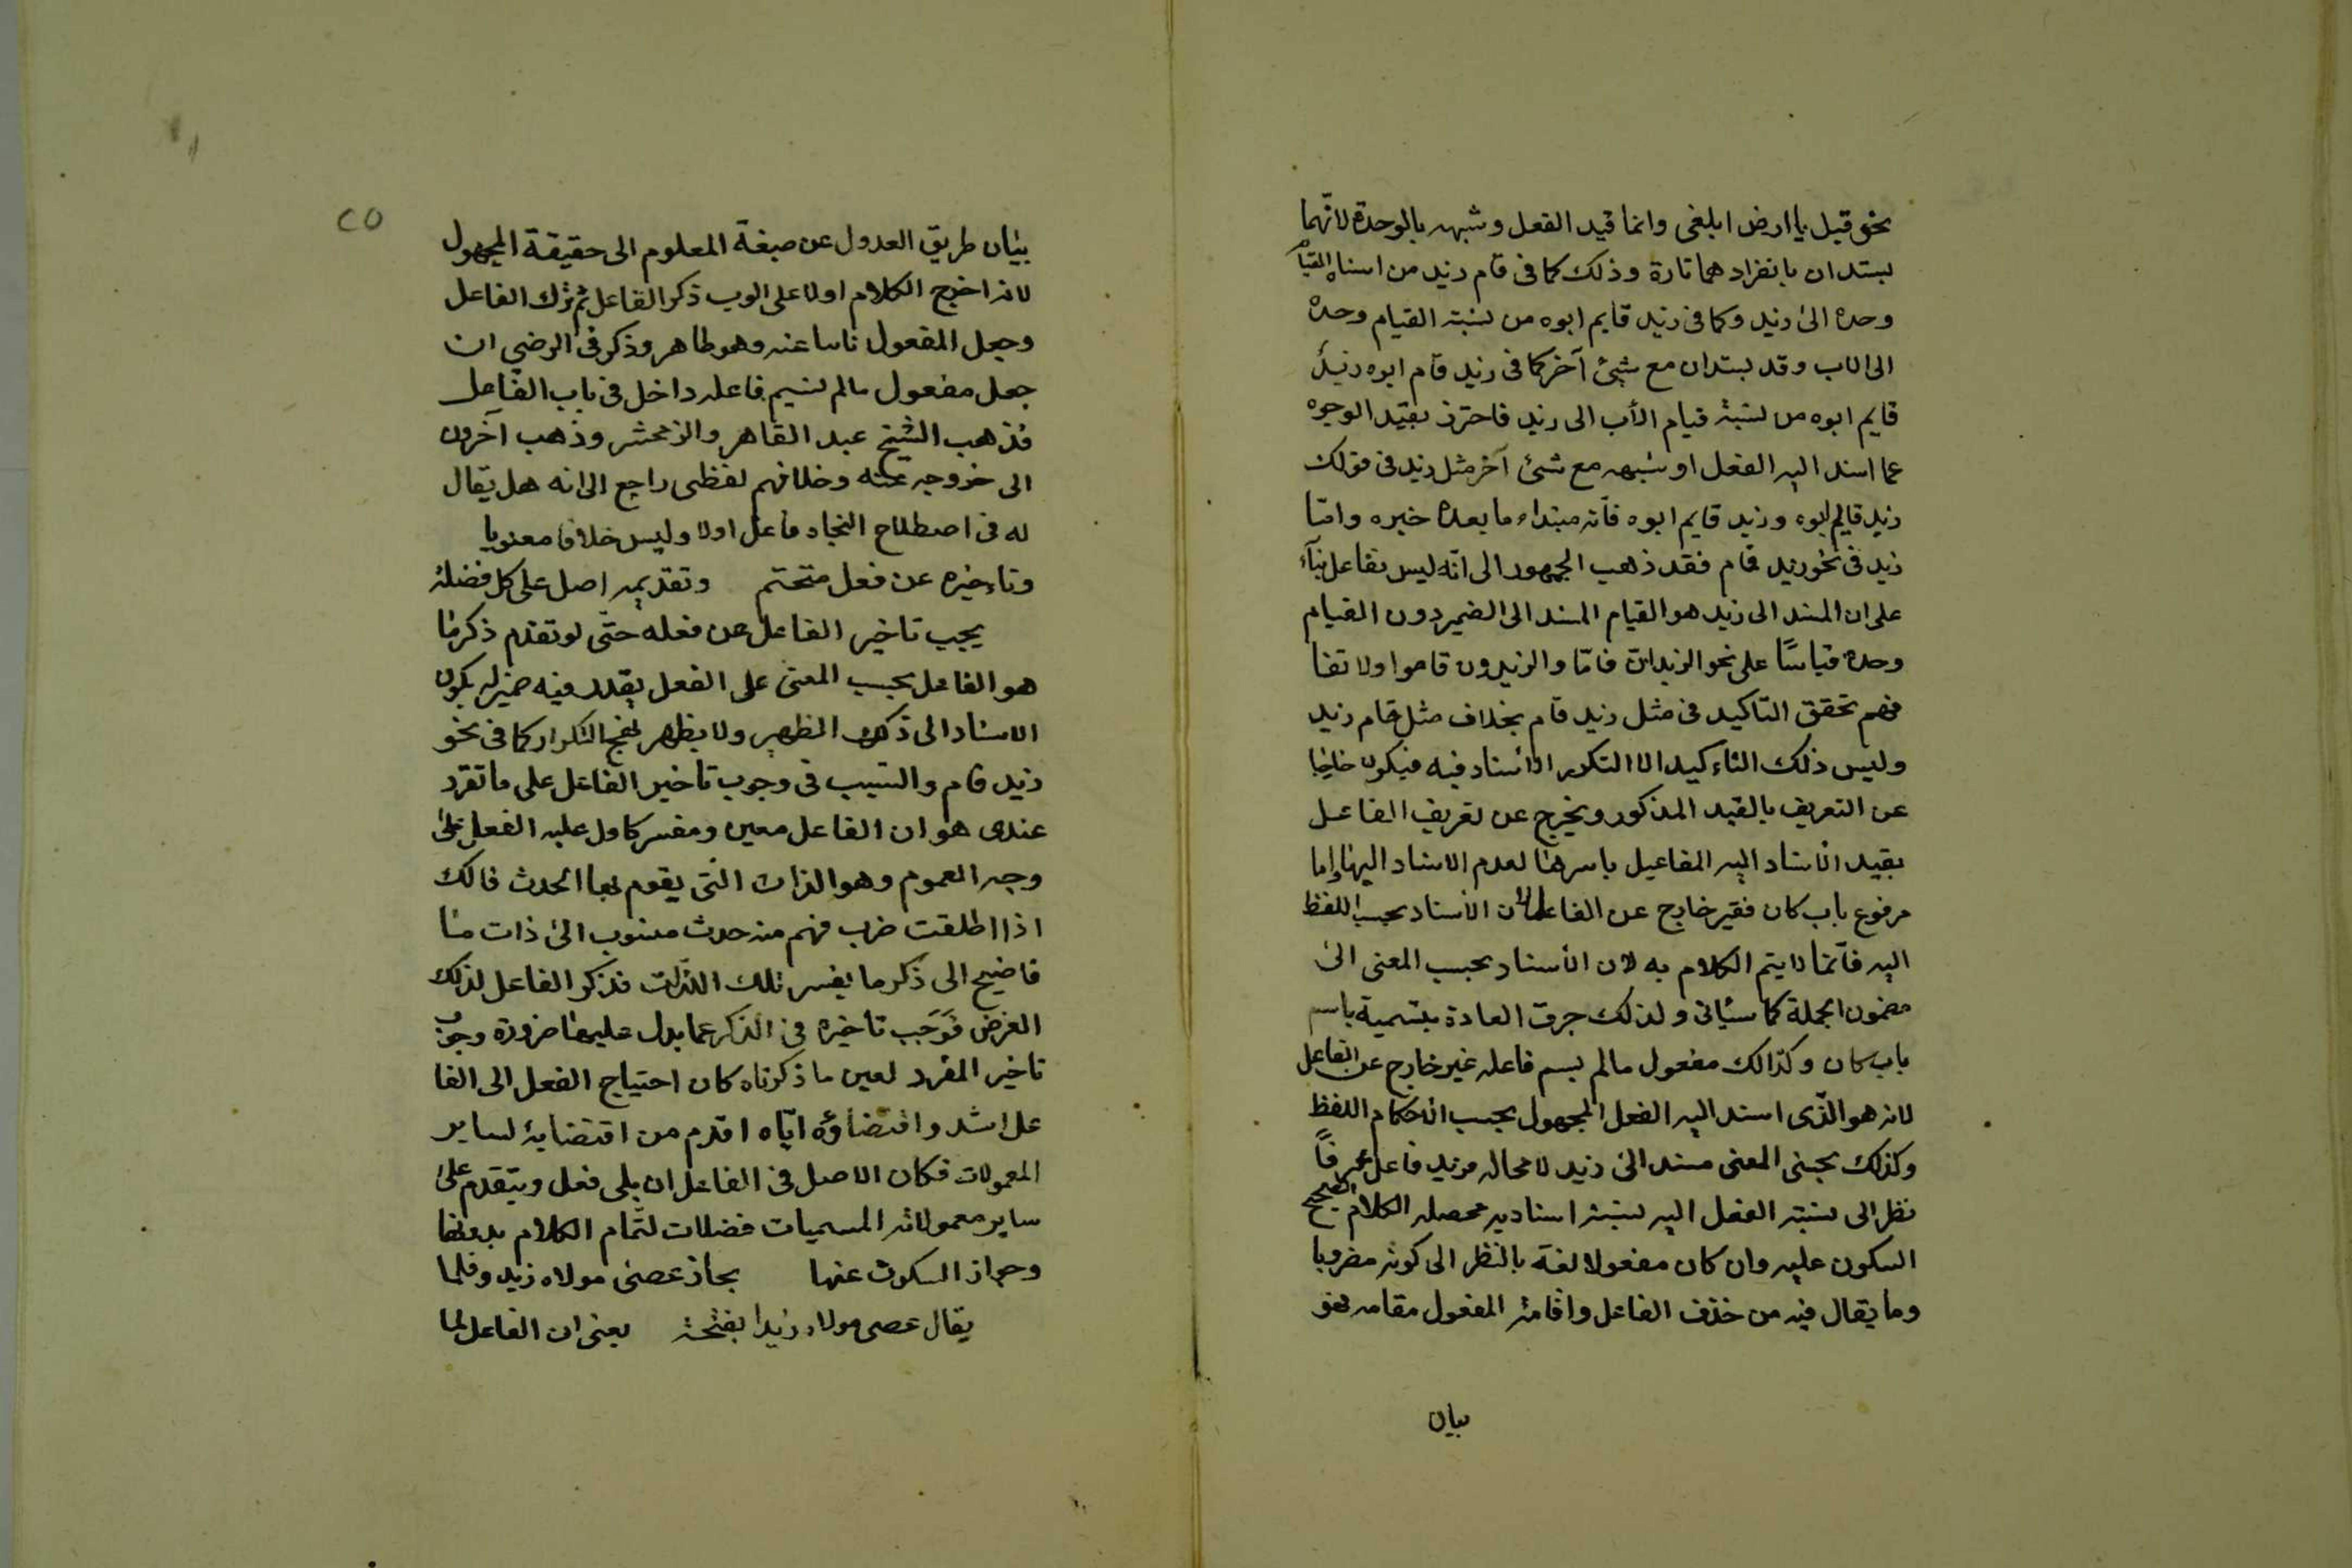 نحو قيل يا ارض ابلغى وانما قيد الفعل وشبهه بالوحدة لانّهما
يسندان بانفرادهما تارة وذلك كما فى قام زيد من اسناد القيام
وحده الى زيد وكما فى زيد قايم ابوه من نسبته القيام وحده
الى الاب وقد يسندان مع شئ آخر كما فى زيد قام ابوه وزيد
قايم ابوه من نسبته قيام الأب الى زيد فاحترز بقيد الوحده
عما اسند اليه الفعل او شبهه مع شئ آخر مثل زيد فى قولك
زيد قايم ابوه وزيد قايم ابوه فانه مبتداء ما بعده خبره وامّا
زيد فى نحو زيد قام فقد ذهب الجمهور الى انّه ليس بفاعل بنآء
على ان المسند الى زيد هو القيام المسند الى الضمير دون القيام
وحده قياسًا على نحو الزيدان قاما والزيدون قاموا ولا تفا
فهم تحقق التاكيد فى مثل زيد قام بخلاف مثل قام زيد
وليس ذلك التاءكيد الا التكرر الاسناد فيه فيكون خارجا
عن التعريف بالقيد المذكور ويخرج عن تعريف الفاعل
بقيد الاسناد اليه المفاعيل باسرها لعدم الاسناد اليها واما
مرفوع باب كان فغير خارج عن الفاعل لان الأسناد بحسب اللفظ
اليه فانّما لا يتم الكلام به لان الأسناد بحسب المعنى الى
مضمون الجملة كما سيأتى ولذلك جرت العادة بتسمية باسم
باب كان وكذالك مفعول مالم يسم فاعله غير خارج عن الفاعل
لانه هو الّذى اسند اليه الفعل المجهول بحسب الاحكام اللفظ
وكذلك بحسب المعنى مسند الى زيد لا محاله فزيد فاعل عرفًا
نظرا الى نسبته الفعل اليه نسبته اسناديه محصله الكلام الصحيح
السكون عليه وان كان مفعولا لغة بالنظر الى كونه مضروبا
وما يقال فيه من حذف الفاعل واقامة المفعول مقامه فهو
بيان
٢٥
بيان طريق العدول عن صيغة المعلوم الى حقيقة المجهول
لانه اخرج الكلام اولا على ذكر الفاعل ثم ترك الفاعل
وجعل المفعول نائبا عنه وهو ظاهر وذكر فى الرضي ان
جعل مفعول مالم يسم فاعله داخل فى باب الفاعل
مذهب الشيخ عبد القاهر والزمحشر وذهب آخرون
الى خروجه عنه وخلافهم لفظى راجع الى انه هل يقال
له فى اصطلاح النحاة فاعل اولا وليس خلافا معنويا
وتاءخيره عن فعل متحتم وتقديمه اصل على كل فضلة
يجب تاخير الفاعل عن فعله حتّى لو تقدم ذكر ما
هو الفاعل بحسب المعنى على الفعل يقدر فيه ضميرله يكون
الاسناد الى ذلك الظهير ولا يظهر لفج التكرار كما فى نحو
زيد قام والسبب فى وجوب تاخير الفاعل على ما تقرر
عندى هو ان الفاعل معين ومفسر كا ول عليه الفعل على
وجه العموم وهو الذات التى يقوم بها الحدث فالك
اذا اطلقت ضرب فهم منه حدث منسوب الى ذات مّا
فاضيج الى ذكر ما يفسر تلك الذّات فذكر الفاعل لذلك
الغرض فَوَجَب تاخيره فى الذكر عما يدل عليها ضرورة وجوب
تاخير المفسر لعين ما ذكرناه كان احتياج الفعل الى الفا
عل اشد واقتضاؤه ايّاه اقدم من اقتضايه لساير
المعمولات فكان الاصل فى الفاعل ان يلى فعل ويتقدم على
ساير معمولاته المسميات فضلات لتمام الكلام بدونها
وجواز السكوت عنها بجاز عصى مولاه زيد وقلما
يقال عصى مولاه زيدا بفتحة يعنى ان الفاعل لما